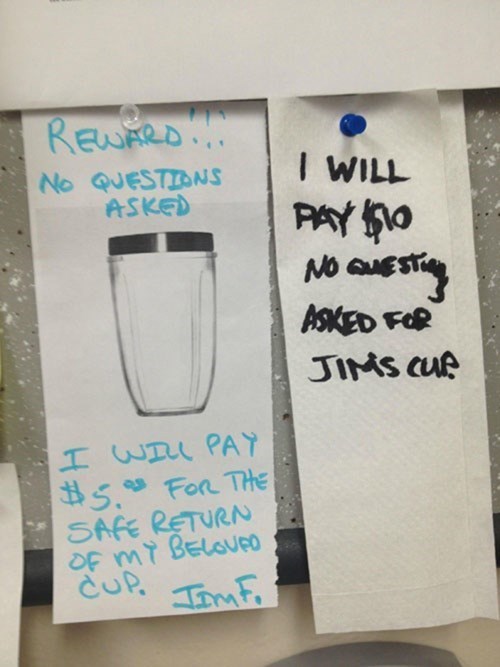 REWARD!!!
NO QUESTIONS
ASKED
I WILL PAY
$5.00 FOR THE
SAFE RETURN
OF MY BELOVED
CUP. JIM F.
I WILL
PAY $10
NO QUESTIONS
ASKED FOR
JIM'S CUP.